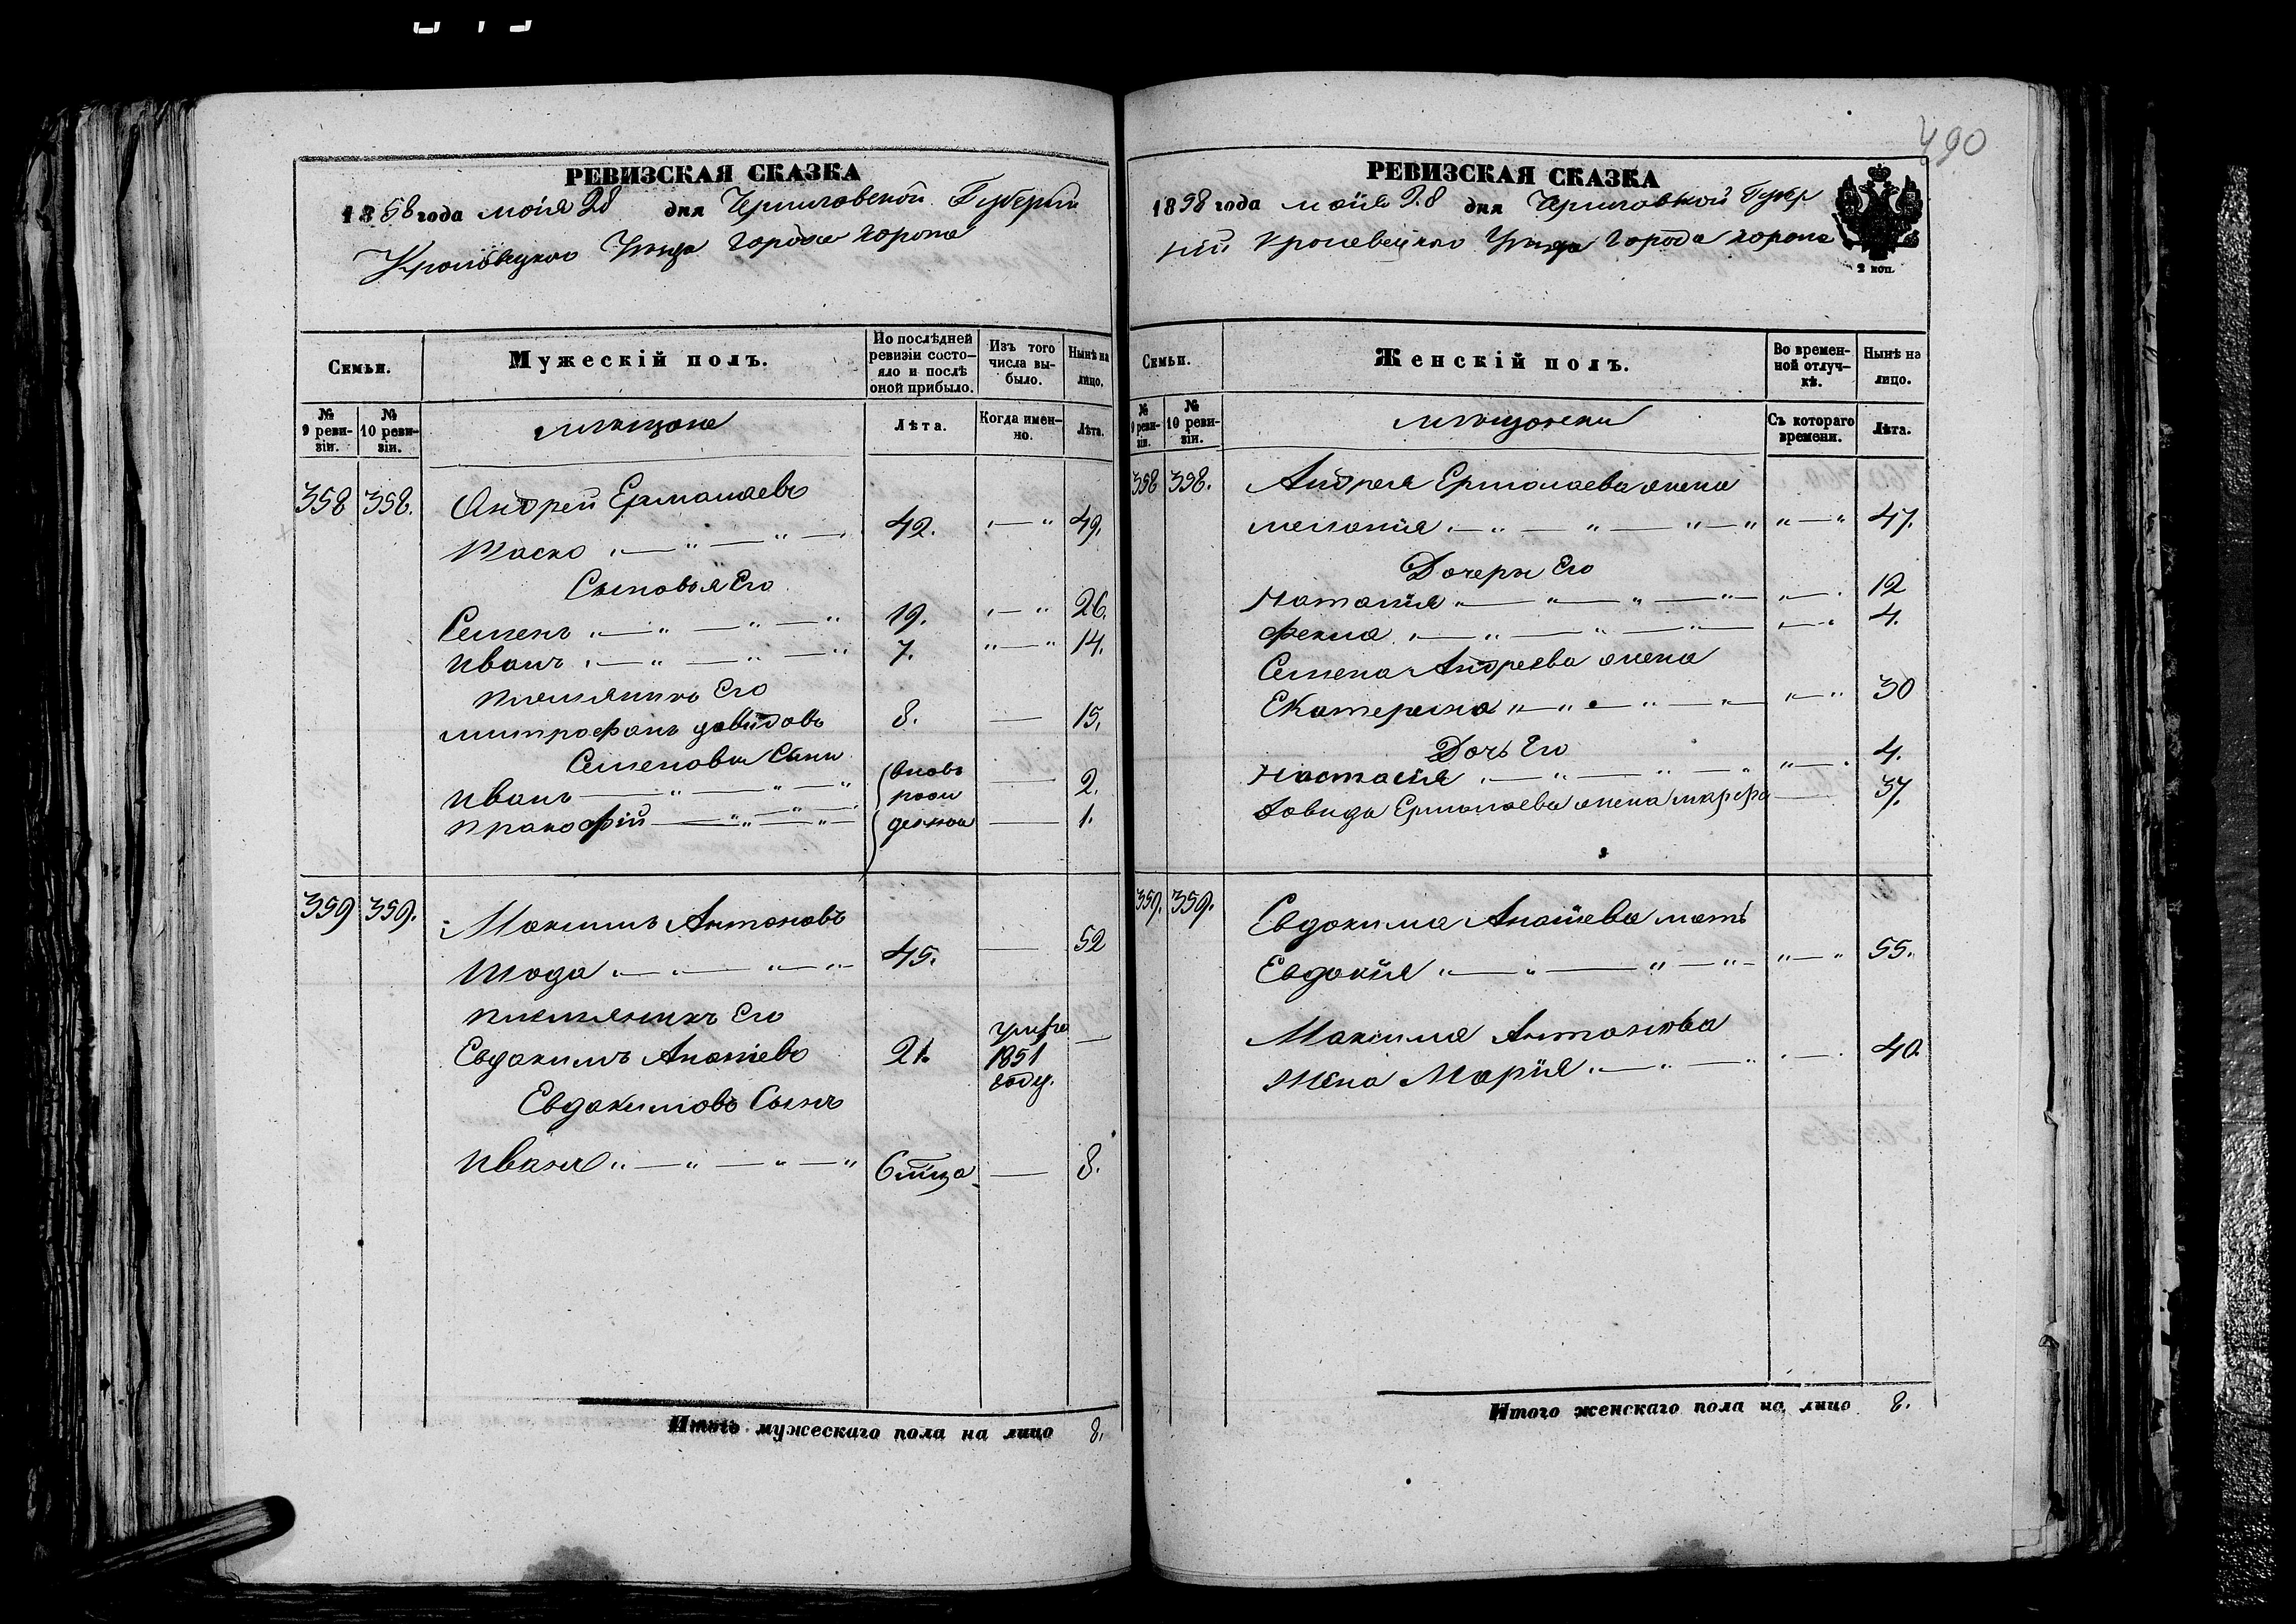 490
РЕВИЗСКАЯ СКАЗКА
1858 года маія 28 дня Черниговской Губерніи
Кролевецкого Уѣзда Города Коропа
Семьи.
Мужескій полъ.
По послѣдней ревизіи состояло и послѣ оной прибыло.
Изъ того числа выбыло.
Нынѣ на лицо.
№ 9 ревизіи.
№ 10 ревизіи.
мѣщане
Лѣта.
Когда именно.
Лѣта.
358 358. Андрей Ермолаевъ
42. 49.
Сыновья Его
Семенъ 19. 26.
Иванъ 7. 14.
племянникъ Его
митрофанъ давидовъ 8. 15.
Семеновы Сыны
Иванъ вновь 2.
Пракофій 1.
359 359. Максимъ Антоновъ
Шода 45. 52
племянникъ Его
Евдокимъ Ананіевъ 21. 1851 году.
Евдокимовъ Сынъ
Иванъ 6 мѣца 8.
Итого мужескаго пола на лицо 8.
РЕВИЗСКАЯ СКАЗКА
1858 года маія 28 дня Черниговской Губер
ніи Кролевецкого Уѣзда Города Коропа
2 коп.
Семьи.
Женскій полъ.
Во временной отлучкѣ.
Нынѣ на лицо.
№ 9 ревизіи.
№ 10 ревизіи.
мѣщанки
Съ котораго времени.
Лѣта.
358 358. Андрея Ермолаева жена
меланія 47.
Дочери Его
Наталія 12
Фекла 4.
Семена Андреева жена
Екатерина 30
Дочь Его
Настасія 4.
Давида Ермолаева жена марфа 37.
359. 359. Евдокима Ананіева мать
Евдокія 55.
Максима Антонова
Жена Марія 40.
Итого женскаго пола на лицо 8.